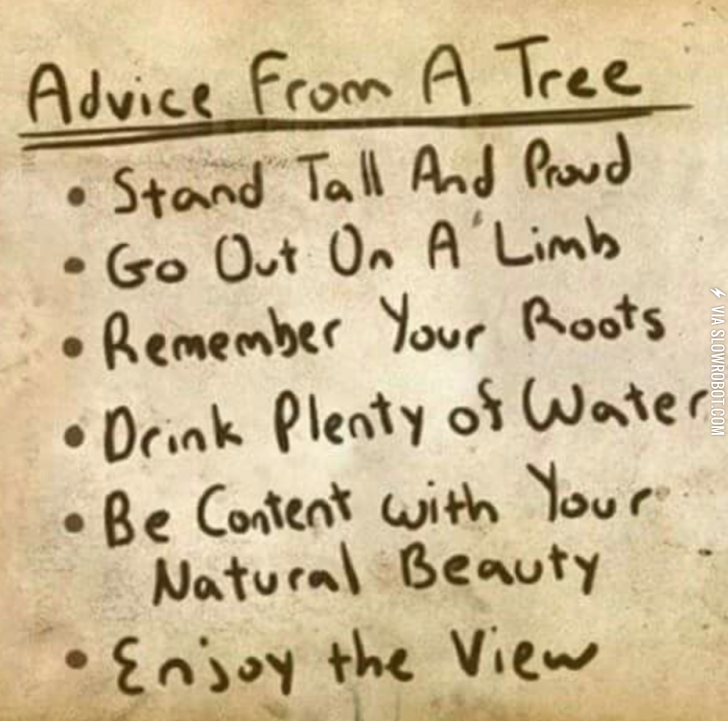 Advice From A Tree
• Stand Tall And Proud
• Go Out On A Limb
• Remember Your Roots
• Drink Plenty of Water
• Be Content with Your
Natural Beauty
• Enjoy the View
VIA SLOWROBOT.COM